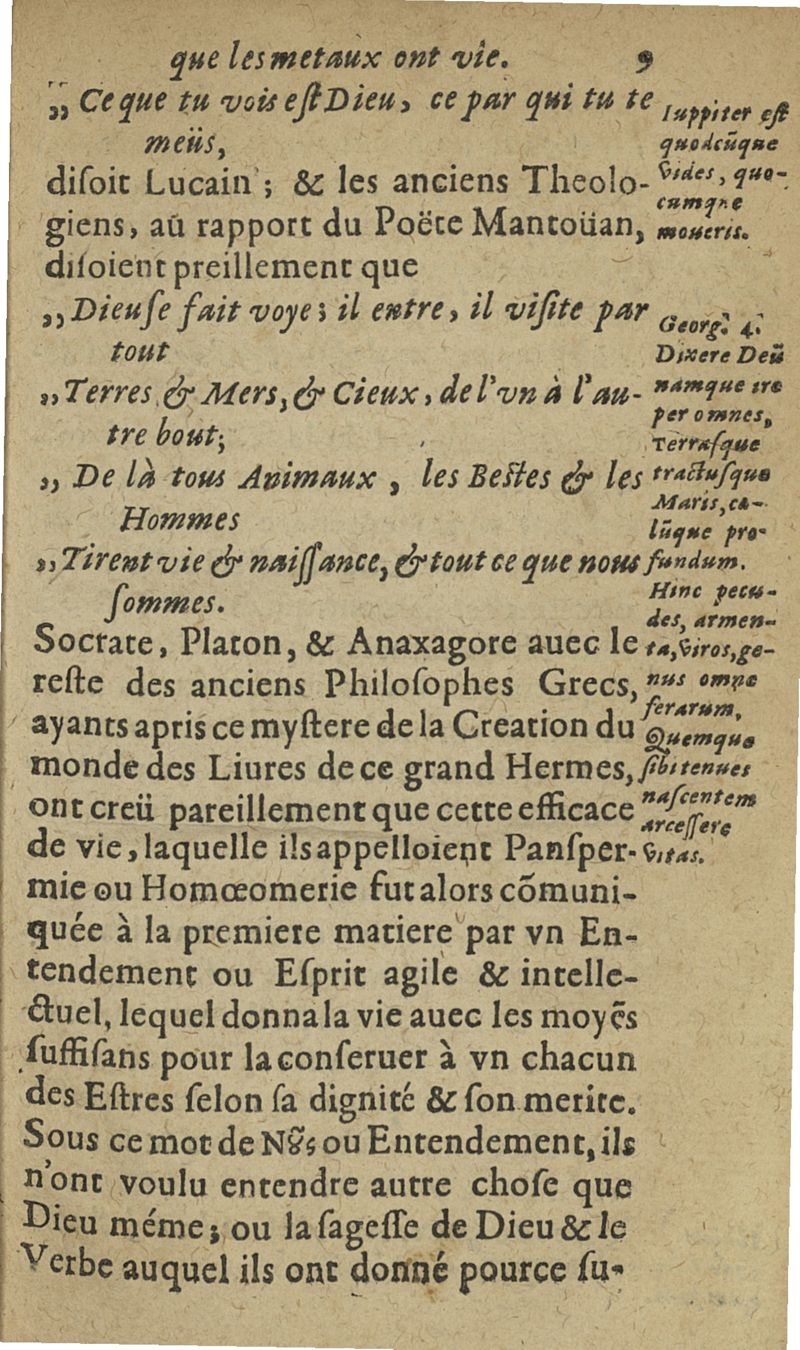 que les metaux ont vîe. 9
„ Ce que tu vois eſt Dieu, ce par qui tu te
meüs,
diſoit Lucain ; & les anciens Theolo-
giens, aû rapport du Poëte Mantoüan,
diſoient preillement que
„ Dieu ſe fait voye; il entre, il viſite par
tout
„ Terres & Mers, & Cieux, de l'vn à l'au-
tre bout;
„ De là tous Animaux, les Beſtes & les
Hommes
„ Tirent vie & naiſſance, & tout ce que nous
ſommes.
Socrate, Platon, & Anaxagore auec le
reſte des anciens Philoſophes Grecs,
ayants apris ce myſtere de la Creation du
monde des Liures de ce grand Hermes,
ont creü pareillement que cette efficace
de vie, laquelle ils appelloient Panſper-
mie ou Homœomerie fut alors cõmuni-
quée à la premiere matiere par vn En-
tendement ou Eſprit agile & intelle-
ctuel, lequel donna la vie auec les moyẽs
ſuffiſans pour la conſeruer à vn chacun
des Eſtres ſelon ſa dignité & ſon merite.
Sous ce mot de Nȣ̃ς ou Entendement, ils
n'ont voulu entendre autre choſe que
Dieu méme; ou la ſageſſe de Dieu & le
Verbe auquel ils ont donné pource ſu-
Iuppiter eſt
quodcũque
vides, quo-
cumque
moueris.
Georg. 4.
Dixere Deũ
namque ire
per omnes,
Terraſque
tractuſque
Maris, cæ-
lũque pro-
fundum.
Hinc pecu-
des, armen-
ta, viros, ge-
nus omne
ferarum.
Quemque
ſibi tenues
naſcentem
arceſſere
vitas.